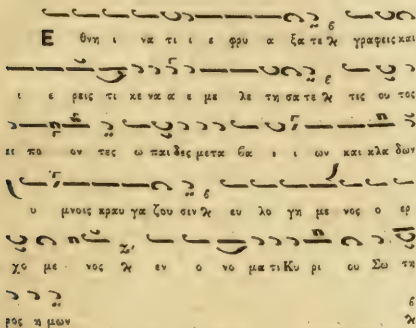 Ε θνη ι να τι ι ε φρυ α ξα τε ϗ γραφεις και
ι ε ρεις τι κε να α ε με λε τη σα τε ϗ τις ου τος
ει πο ον τες ω παι δες με τα βα ι ι ων και κλα δων
υ μνοις κραυ γα ζου σιν ϗ ευ λο γη με νος ο ερ
χο με νος ϗ εν ο νο μα τι Κυ ρι ου Σω τη
ρος η μων